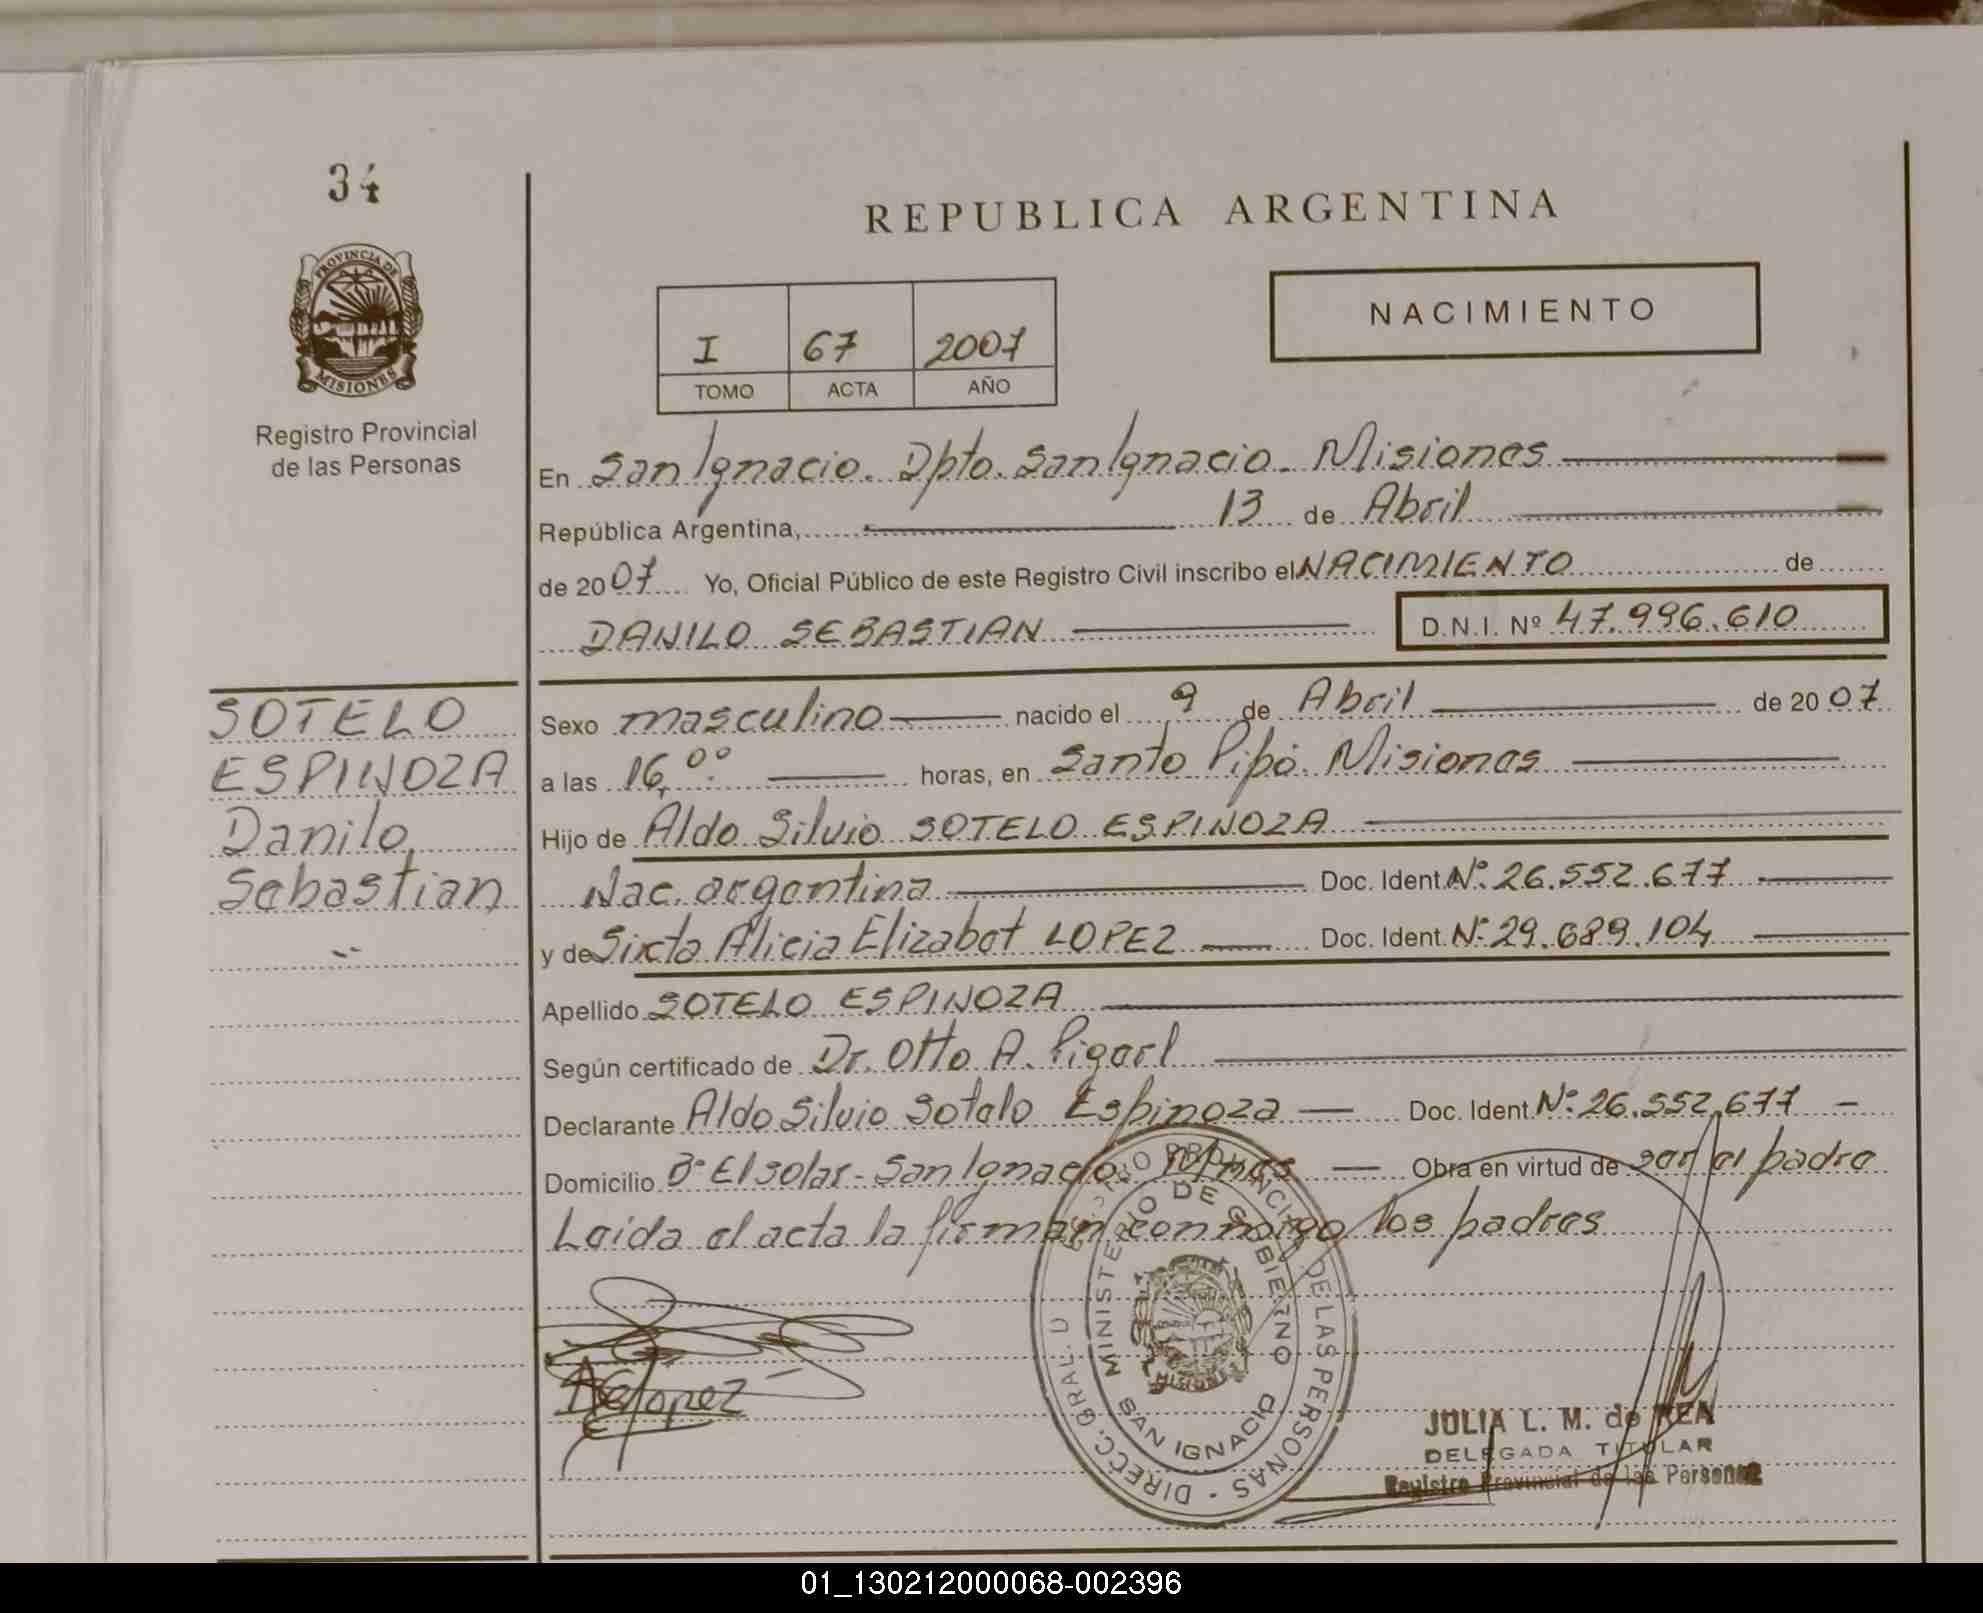 34
PROVINCIA DE
MISIONES
Registro Provincial
de las Personas
REPUBLICA ARGENTINA
NACIMIENTO
I 67 2007
TOMO ACTA AÑO
En San Ignacio. Dpto. San Ignacio. Misiones
República Argentina, 13 de Abril
de 2007 Yo, Oficial Público de este Registro Civil inscribo el NACIMIENTO de
DANILO SEBASTIAN D.N.I. Nº 47.996.610
SOTELO
ESPINOZA
Danilo
Sebastian
Sexo masculino nacido el 9 de Abril de 2007
a las 16,00 horas, en Santo Pipó. Misiones
Hijo de Aldo Silvio SOTELO ESPINOZA
Nac. argentina Doc. Ident. Nº 26.552.677
y de Sixta Alicia Elizabet LOPEZ Doc. Ident. Nº 29.689.104
Apellido SOTELO ESPINOZA
Según certificado de Dr. Otto A.
Declarante Aldo Silvio Sotelo Espinoza Doc. Ident. Nº 26.552.677
Domicilio Bº El solar - San Ignacio. Mnes Obra en virtud de ser el padre
Leida el acta la firman conmigo los padres
MINISTERIO DE GOBIERNO
SAN IGNACIO
DIRECC. GRAL. D REGISTRO PROVINCIAL DE LAS PERSONAS
Lopez
JULIA L. M. de REA
DELEGADA TITULAR
Registro Provincial de las Personas
01_130212000068-002396